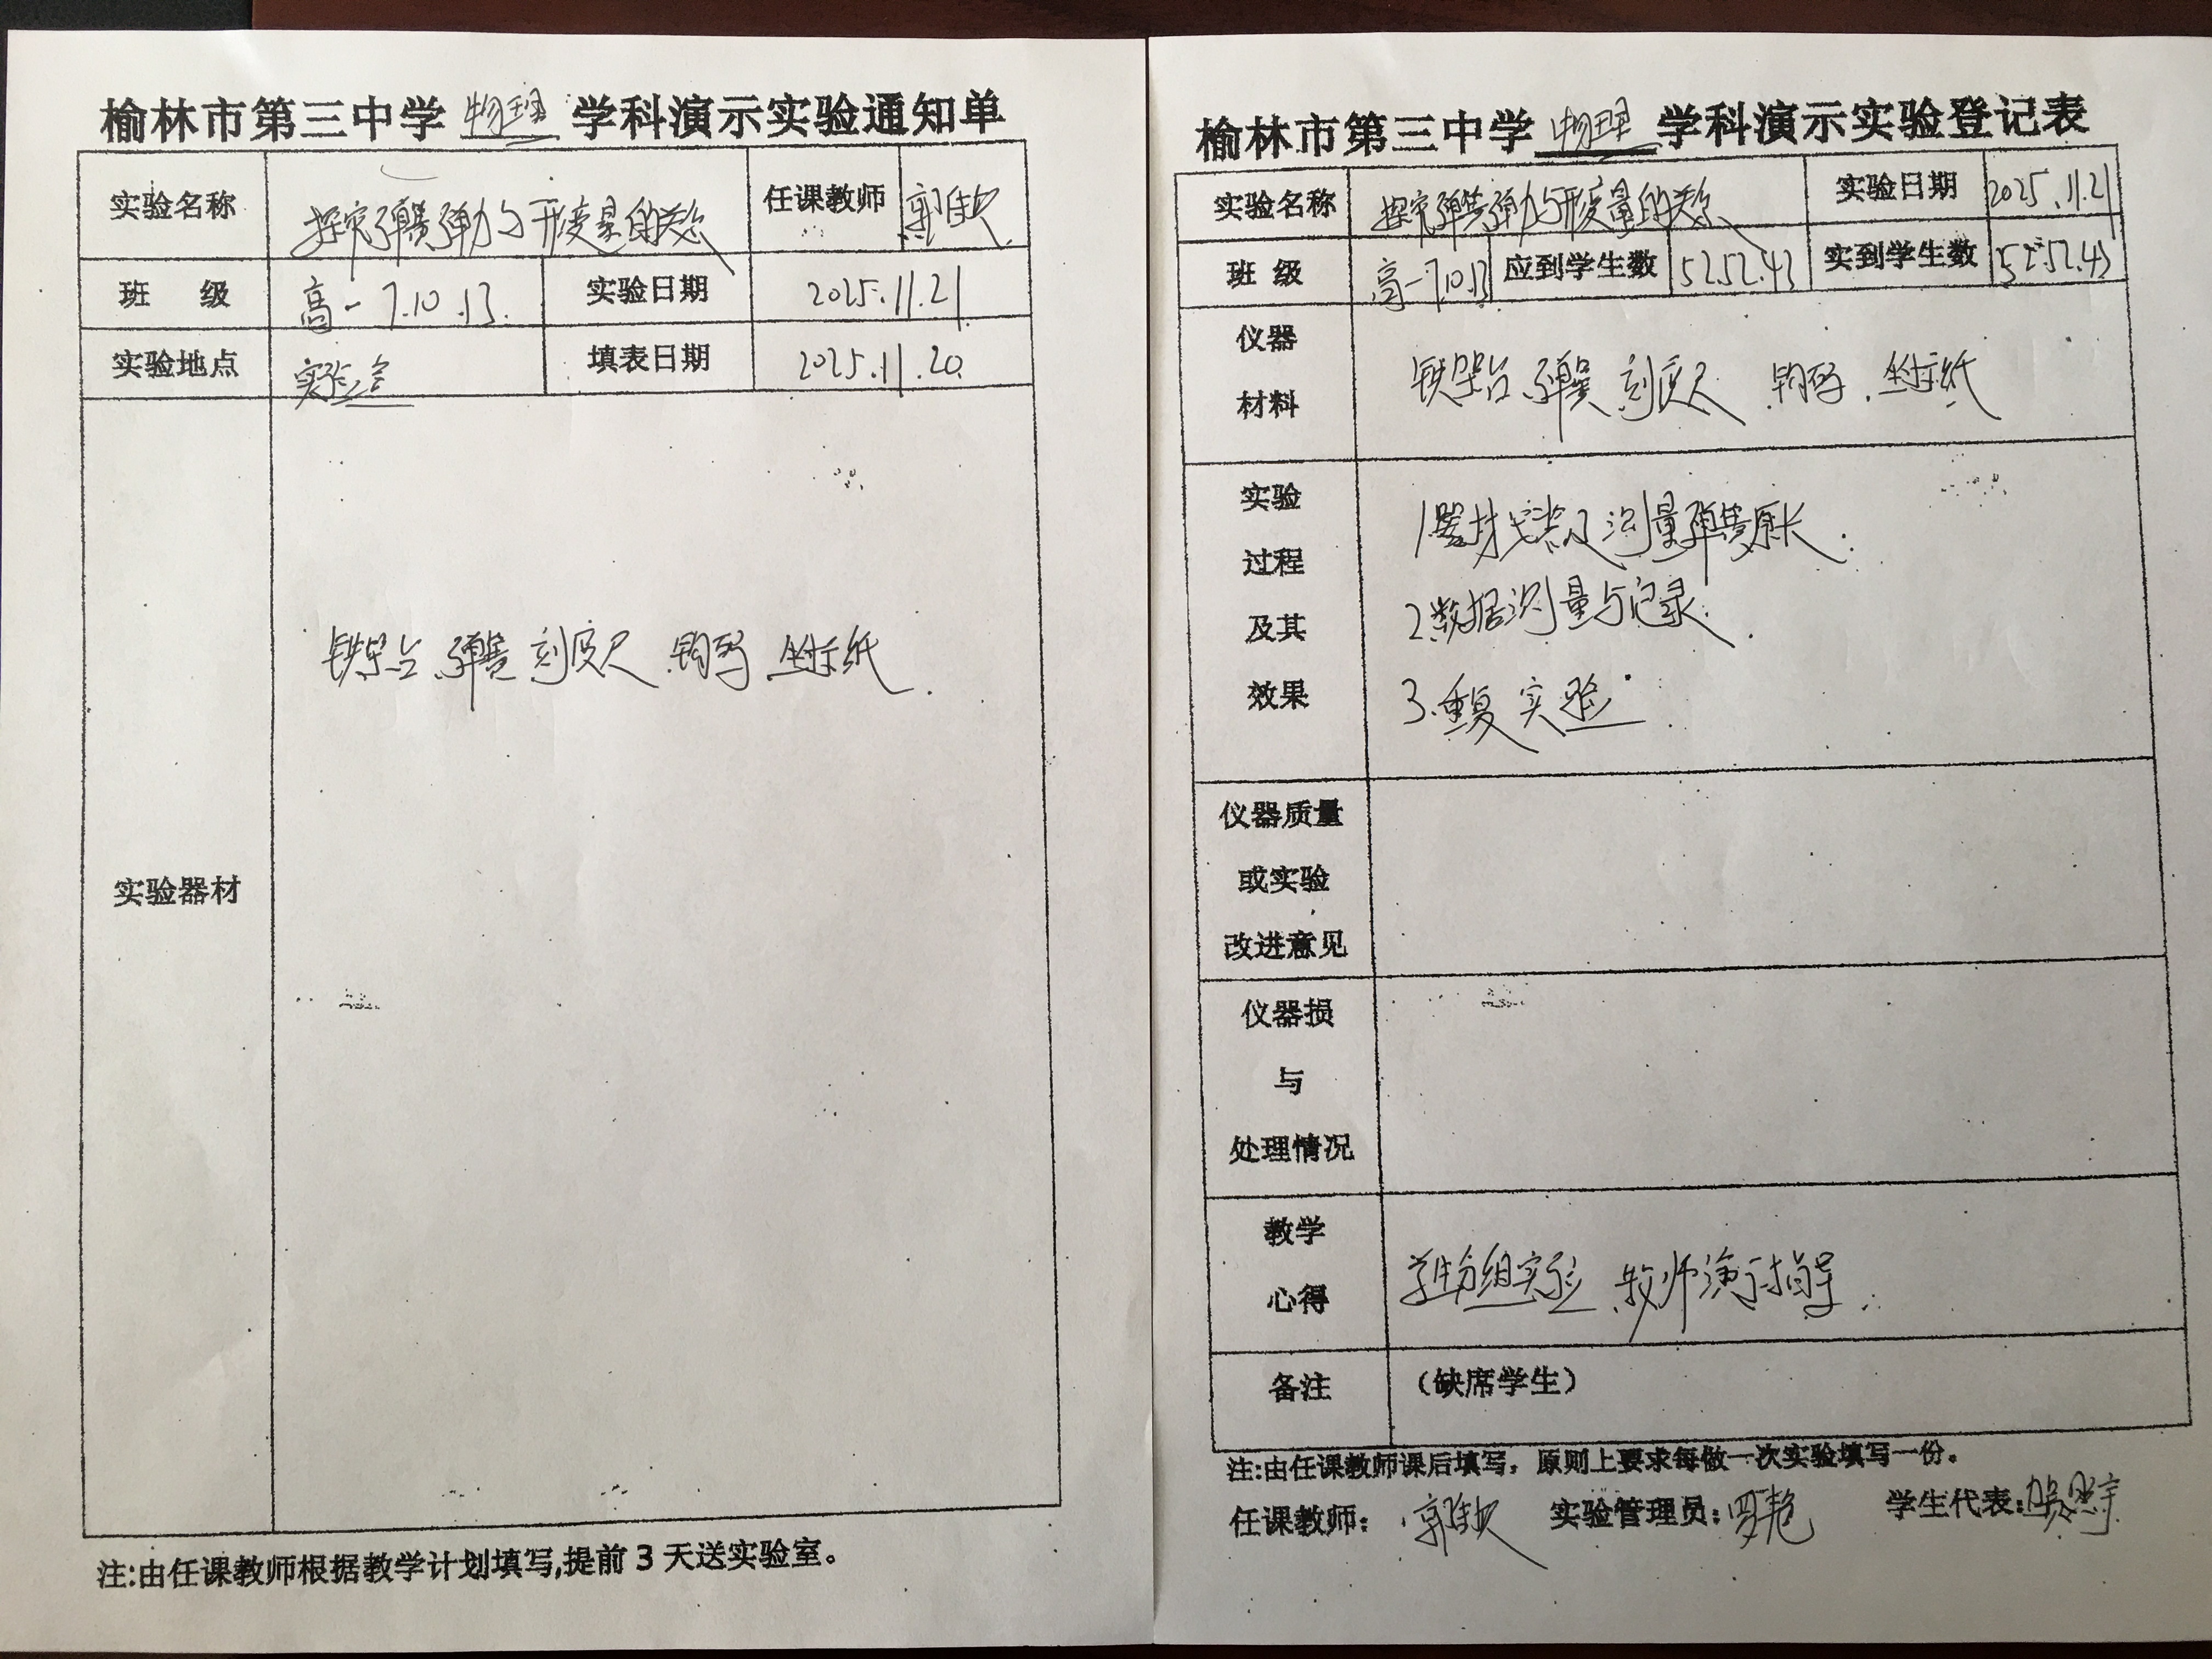 榆林市第三中学 物理 学科演示实验通知单
实验名称 探究弹簧弹力与形变量的关系 任课教师 郭佳欢
班 级 高一 7.10.13. 实验日期 2025.11.21
实验地点 实验室 填表日期 2025.11.20.
实验器材 铁架台 弹簧 刻度尺 钩码 坐标纸.
注:由任课教师根据教学计划填写,提前 3 天送实验室。
榆林市第三中学 物理 学科演示实验登记表
实验名称 探究弹簧弹力与形变量的关系 实验日期 2025.11.21
班 级 高一7.10.13 应到学生数 52.52.43 实到学生数 52.52.43
仪器
材料
铁架台 弹簧 刻度尺 钩码. 坐标纸
实验
过程
及其
效果
1.器材安装及测量弹簧原长.
2.数据测量与记录.
3.重复实验.
仪器质量
或实验
改进意见
仪器损
与
处理情况
教学
心得
学生分组实验 教师演示指导.
备注 (缺席学生)
注:由任课教师课后填写，原则上要求每做一次实验填写一份。
任课教师: 郭佳欢 实验管理员: 罗艳 学生代表: